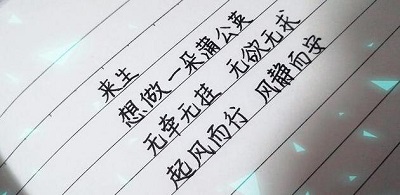 来生
想做一朵蒲公英
无牵无挂 无欲无求
起风而行 风静而安